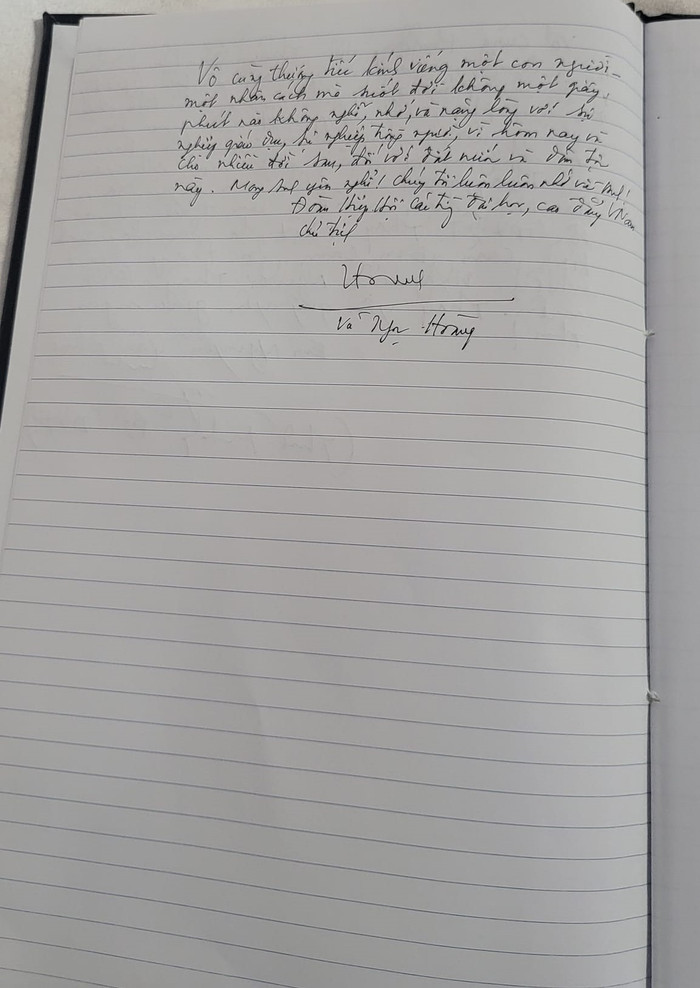 Vô cùng thương tiếc kính viếng một con người -
một nhân cách mà suốt đời không một giây,
phút nào không nghĩ, nhớ, và nặng lòng với sự
nghiệp giáo dục, sự nghiệp trồng người, vì hôm nay và
cho nhiều đời sau, đối với đất nước và dân tộc
này. Mong anh yên nghỉ! Chúng tôi luôn luôn nhớ về anh!
Đoàn Hiệp Hội các trường đại học, cao đẳng VNam
Vũ Ngọc Hoàng